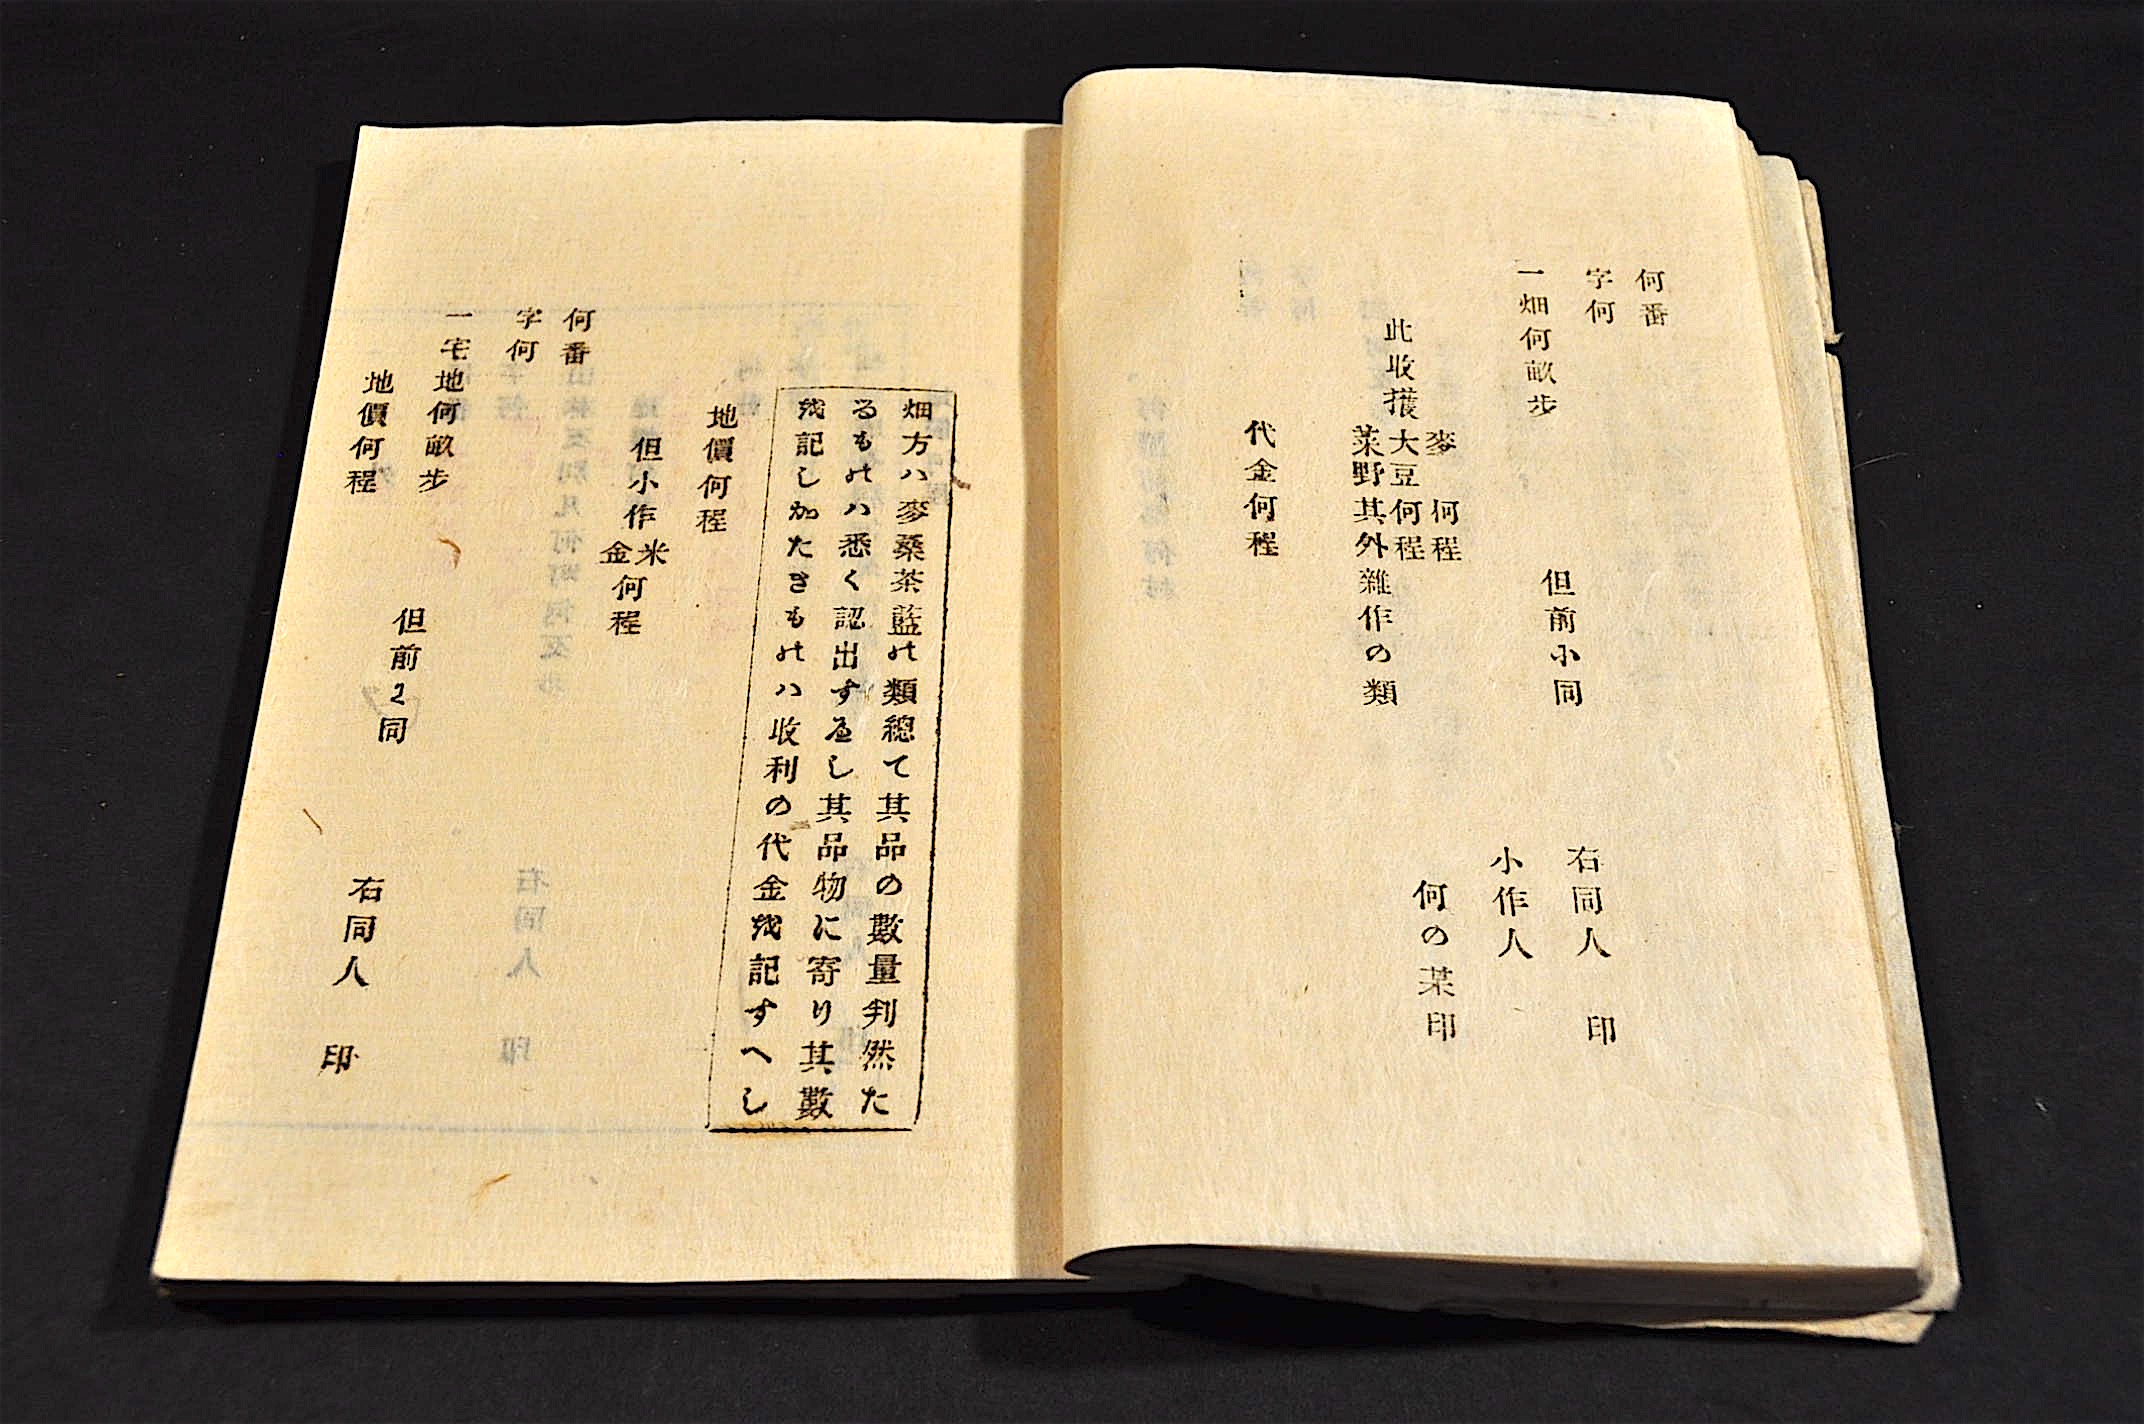 何番
字何
一畑何畝歩
但前小同
右同人 印
小作人
何の某印
此收獲
麥 何程
大豆何程
菜野其外雑作の類
代金何程
畑方ハ麥桑茶藍の類總て其品の數量判然た
るものハ悉く認出すへし其品物に寄り其數
を記しかたきものハ收利の代金を記すへし
地價何程
但小作米金何程
何番
字何
一宅地何畝歩
但前に同
右同人 印
地價何程